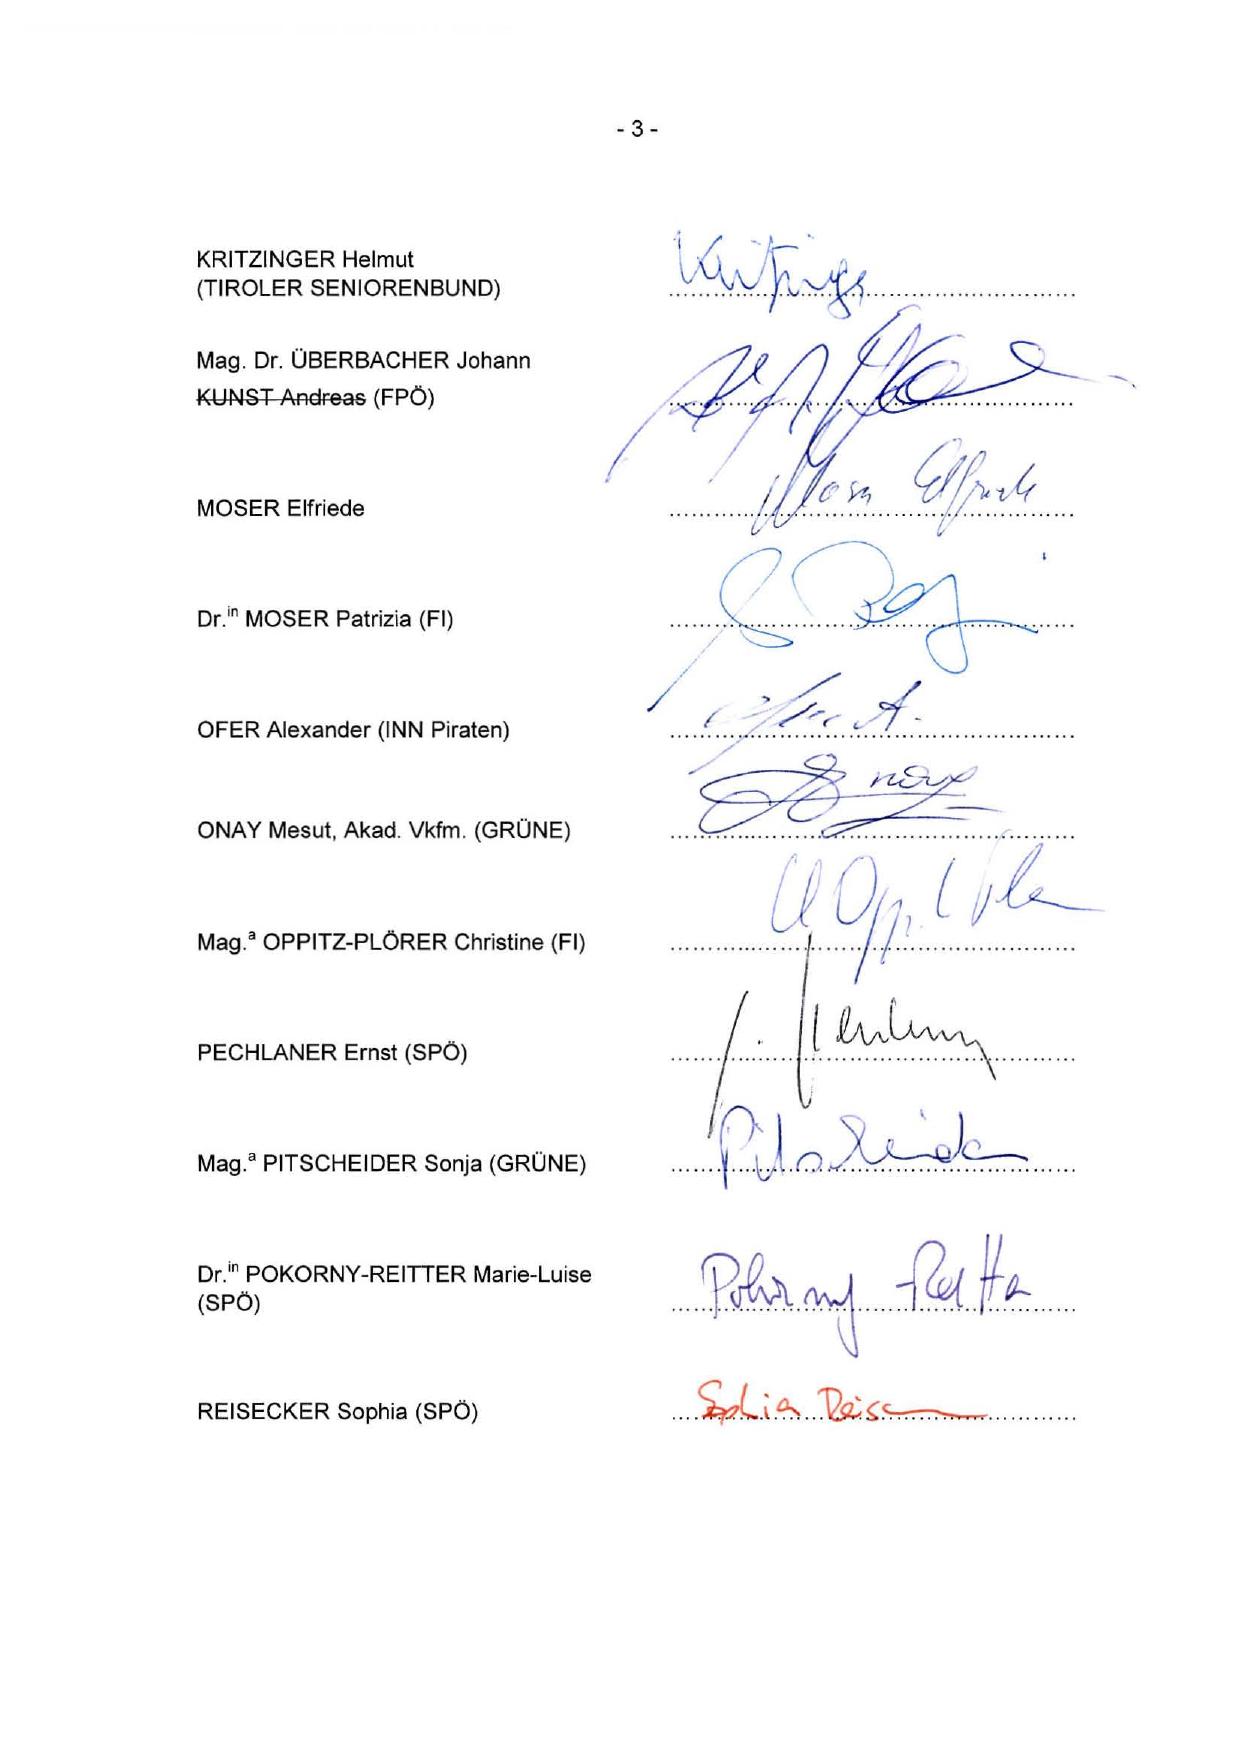 - 3 -
KRITZINGER Helmut
(TIROLER SENIORENBUND)
Mag. Dr. ÜBERBACHER Johann
KUNST Andreas (FPÖ)
MOSER Elfriede
Moser Elfriede
Dr.in MOSER Patrizia (FI)
OFER Alexander (INN Piraten)
ONAY Mesut, Akad. Vkfm. (GRÜNE)
Mag.a OPPITZ-PLÖRER Christine (FI)
PECHLANER Ernst (SPÖ)
Mag.a PITSCHEIDER Sonja (GRÜNE)
Dr.in POKORNY-REITTER Marie-Luise
(SPÖ)
REISECKER Sophia (SPÖ)
Sophia